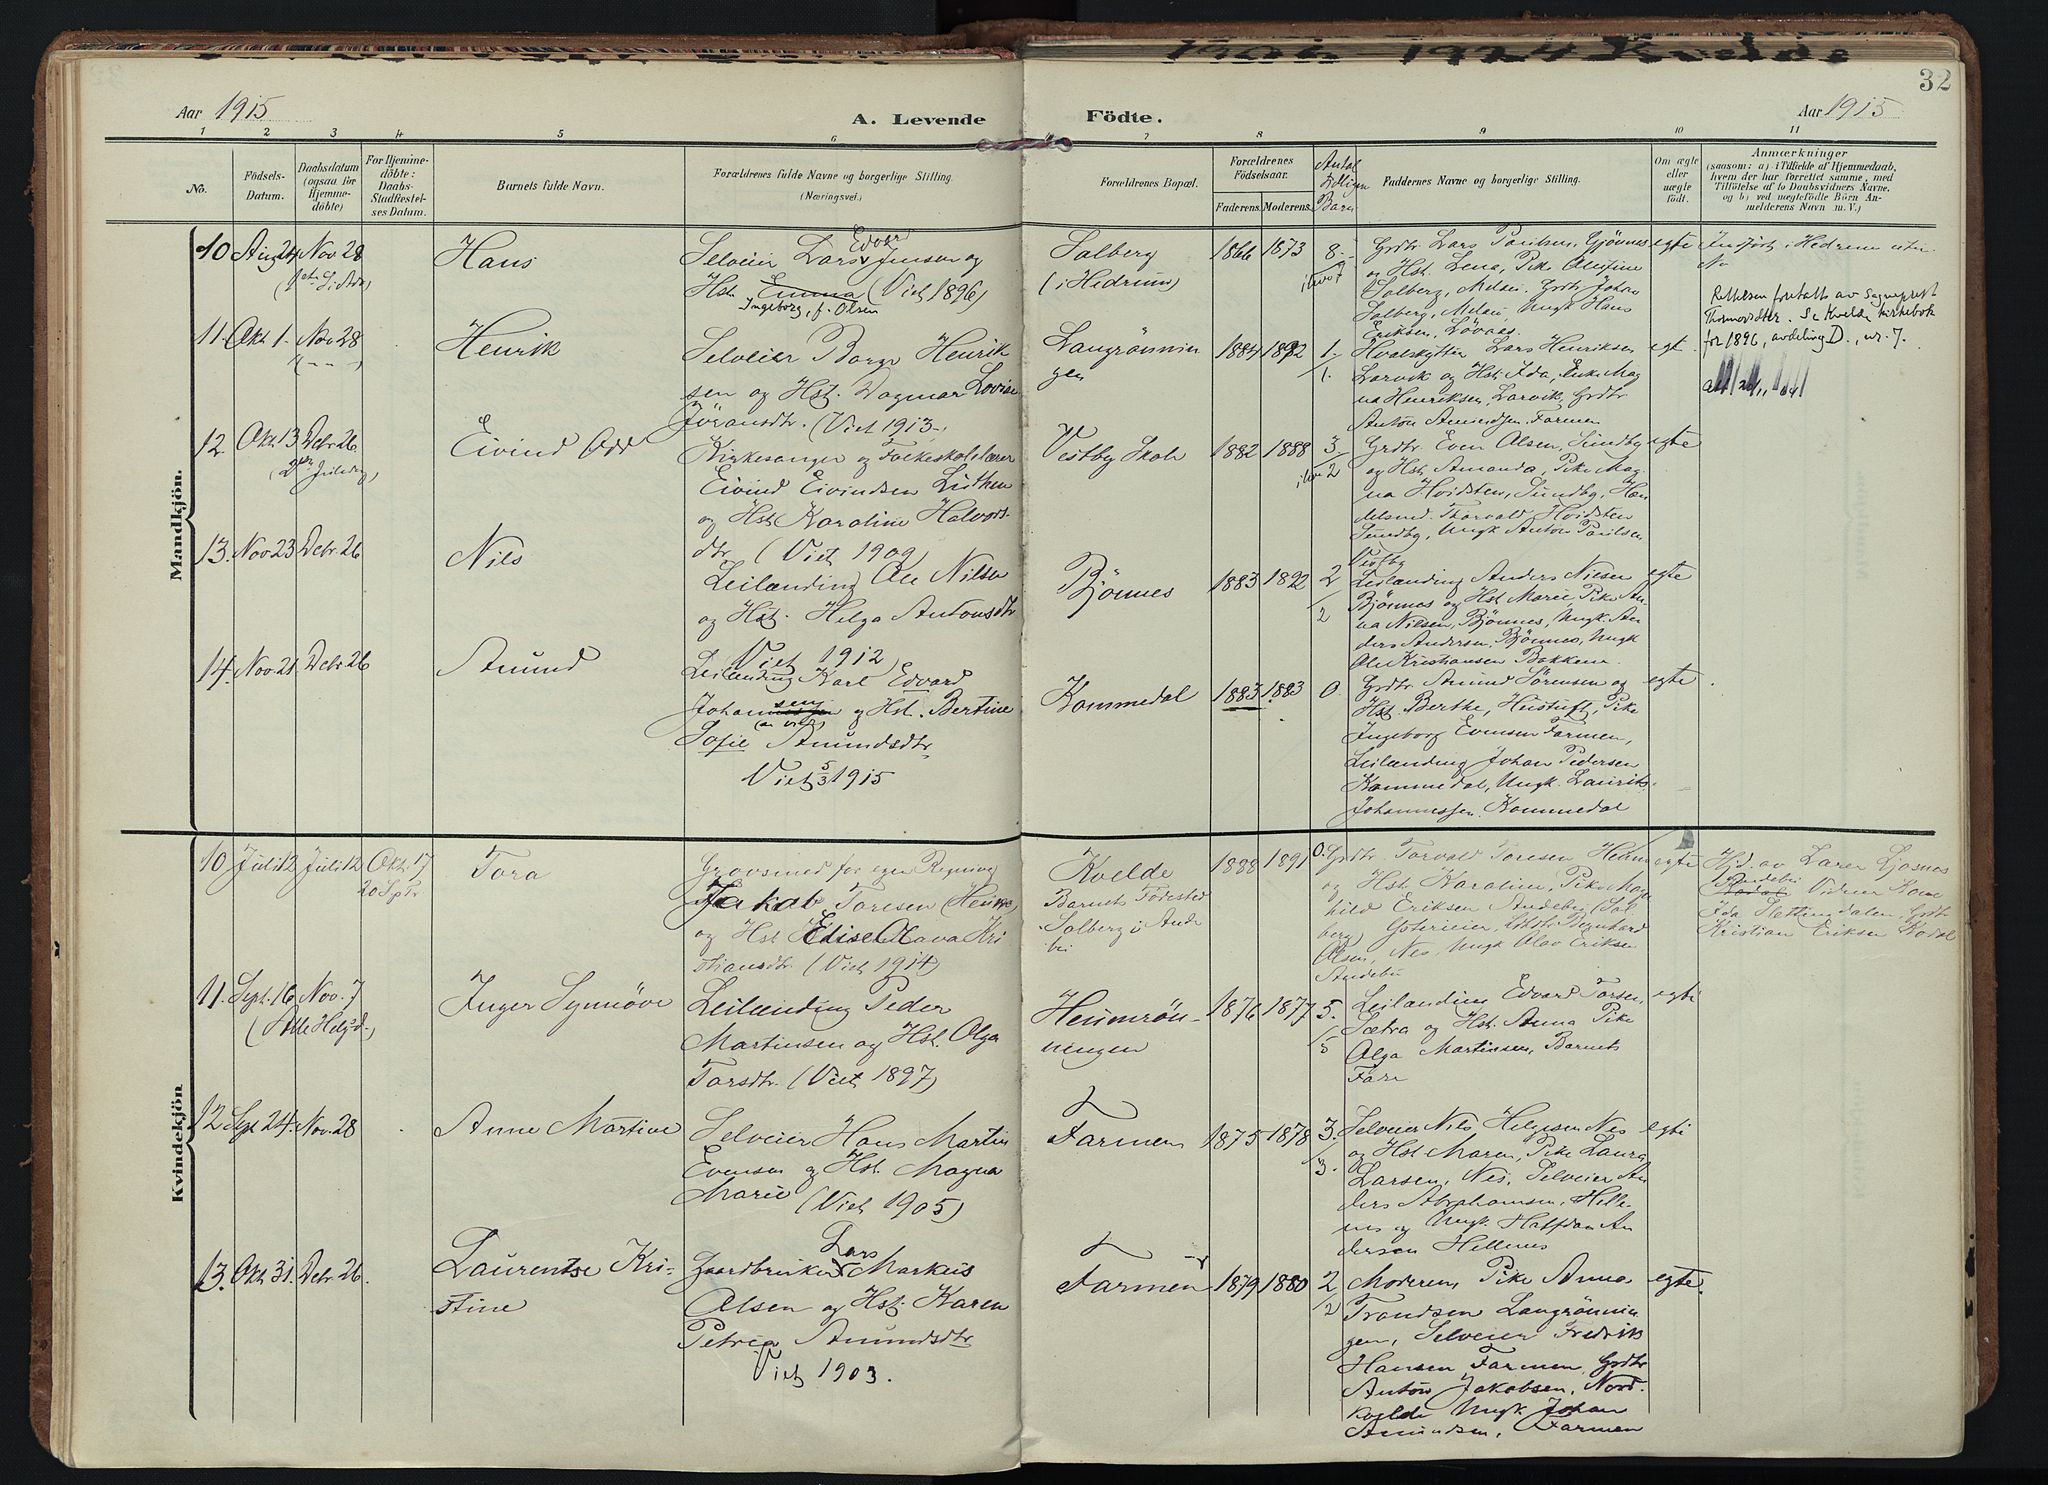 1906 1924 Kvelde
32
Aar 1915
A. Levende
Födte.
Aar 1915
1 2 3 4 5 6 7 8 9 10 11
No.
Födsels-
Datum.
Daabsdatum
(ogsaa for
Hjemme-
döbte)
For Hjemme-
döbte:
Daabs-
Stadfæstel-
ses Datum.
Barnets fulde Navn.
Forældrenes fulde Navne og borgerlige Stilling.
(Næringsvei.)
Forældrenes Bopæl.
Forældrenes
Födselsaar.
Faderens. Moderens.
Antal
Barn
Faddernes Navne og borgerlige Stilling.
Om ægte
eller
uægte
født.
Anmærkninger
(saasom: a) i Tilfælde af Hjemmedaab,
hvem der har forrettet samme, med
Tilföielse af to Daabsvidners Navne,
og b) ved uægtefödte Börn An-
melderens Navn m. V.)
Mandkjön.
10 Aug 24 Nov 28
Hans
Selveier Lars Edvard Jensen og
Hst. Emma (Viet 1896)
Ingeborg, f. Olsen
Solberg
(i Hedrum)
1866 1873 8.
Grdbr. Lars Paulsen, Gjönnes
og Hst. Lena, Pike Alestine
Solberg, Melau, Grdbr. Johan
Solberg, Melau, Ungk. Hans
Eriksen, Lövaas.
egte
Rettelsen foretatt av Sogneprest
Se Kvelde kirkebok
for 1896, avdeling D., nr. 7.
11. Okt 1. Nov 28
Henrik
Selveier Borge Henrik
sen og Hst. Dagmar Lovise
Jöransdtr. (Viet 1913)
Langrönnin
gen
1884 1892 1.
1.
Hvalskytter Lars Henriksen
Larvik og Hst. Ida, Enke Mag
na Henriksen, Larvik, Grdbr
Anton Amundsen, Farmen
12. Okt 13 Debr 26
(2den Juledag)
Eivind Odd
Kirkesanger og Folkeskolelærer
Eivind Eivindsen Luthen
og Hst Karoline Halvors-
dtr. (Viet 1909)
Vestby Skole
1882 1888 3
2
Grdbr. Even Olsen, Sundby
og Hst Amanda, Pike Mag
na Hvidsten, Sundby, Han
delsmd. Thorvald Hvidsten
Sundby, Ungk. Anton Paulsen
Vestby
egte
13. Nov 23 Debr 26
Nils
Leilænding Ole Nilsen
og Hst. Helga Antonsdtr
Viet 1912
Bjönnes
1883 1892 2
2
Leilænding Anders Nilsen
Bjönnes og Hst Marie, Pike An
na Nilsen, Bjönnes, Ungk. An
ders Andersen, Bjönnes, Ungk
Ole Kristiansen Bakken
egte
14. Nov 21. Debr 26
Amund
Leilænding Karl Edvard
Johannessen og Hst. Bertine
Sofie Amundsdtr
Viet 5/3 1915
Kommedal
1883 1883 0.
Grdbr. Amund Sörensen og
Hst. Berthe, Hustuft, Pike
Ingeborg Evensen Farmen,
Leilænding Johan Pedersen
Kommedal, Ungk. Laurits
Johannessen. Kommedal
egte
Kvindekjön
10 Juli 12 Juli 12 Okt 17
20 Sptr
Tora
Grovsmed for egen Regning
Jakab Toresen
og Hst Elise Olava Kri
stiansdtr. (Viet 1914)
Kvelde
Barnets Födested
Solberg i Ande
bu
1888 1891 0.
Grdbr. Torvald Toresen
og Hst Karoline, Pike Mag
hild Eriksen Andebu (Sol
berg) Bernhard
Olsen, Nes, Ungk Olav Eriksen
Andebu
egte
Hjd. av Lærer Ljosnes
Andebu
Ida Slettingdalen, Grdbr
Kristian Eriksen Kodal
11. Sept. 16 Nov. 7
(Alle Helg.d.)
Inger Synnöve
Leilænding Peder
Martinsen og Hst. Olga
Torsdtr. (Viet 1897)
Heumrön-
ningen
1876 1877 5.
5
Leilænding Edvard Torsen,
Sætra og Hst. Anna Pike
Olga Martinsen, Barnets
Fare
egte
12 Sept 24. Nov. 28
Anne Martine
Selveier Hans Martin
Evensen og Hst. Magna
Marie (Viet 1905)
Farmen
1875 1878 3.
3.
Selveier Nils Helgesen Nes
og Hst Maren, Pike Laura
Larsen, Nes, Selveier An
ders Abrahamsen, Helle-
nes og Ungk. Halfdan An
dersen Hellenes
egte
13. Okt 31. Debr 26.
Laurentse Kri-
stine
Gaardbruker Lars Markus
Olsen og Hst. Karen
Petrea Amundsdtr
Viet 1903.
Farmen
1879 1880 2
2
Moderen, Pike Anna
Trandsen Langrönnin
gen, Selveier Fredrik
Hansen Farmen, Grdbr
Anton Jakobsen, Nord-
kvelde Ungk. Johan
Amundsen, Farmen
egte.